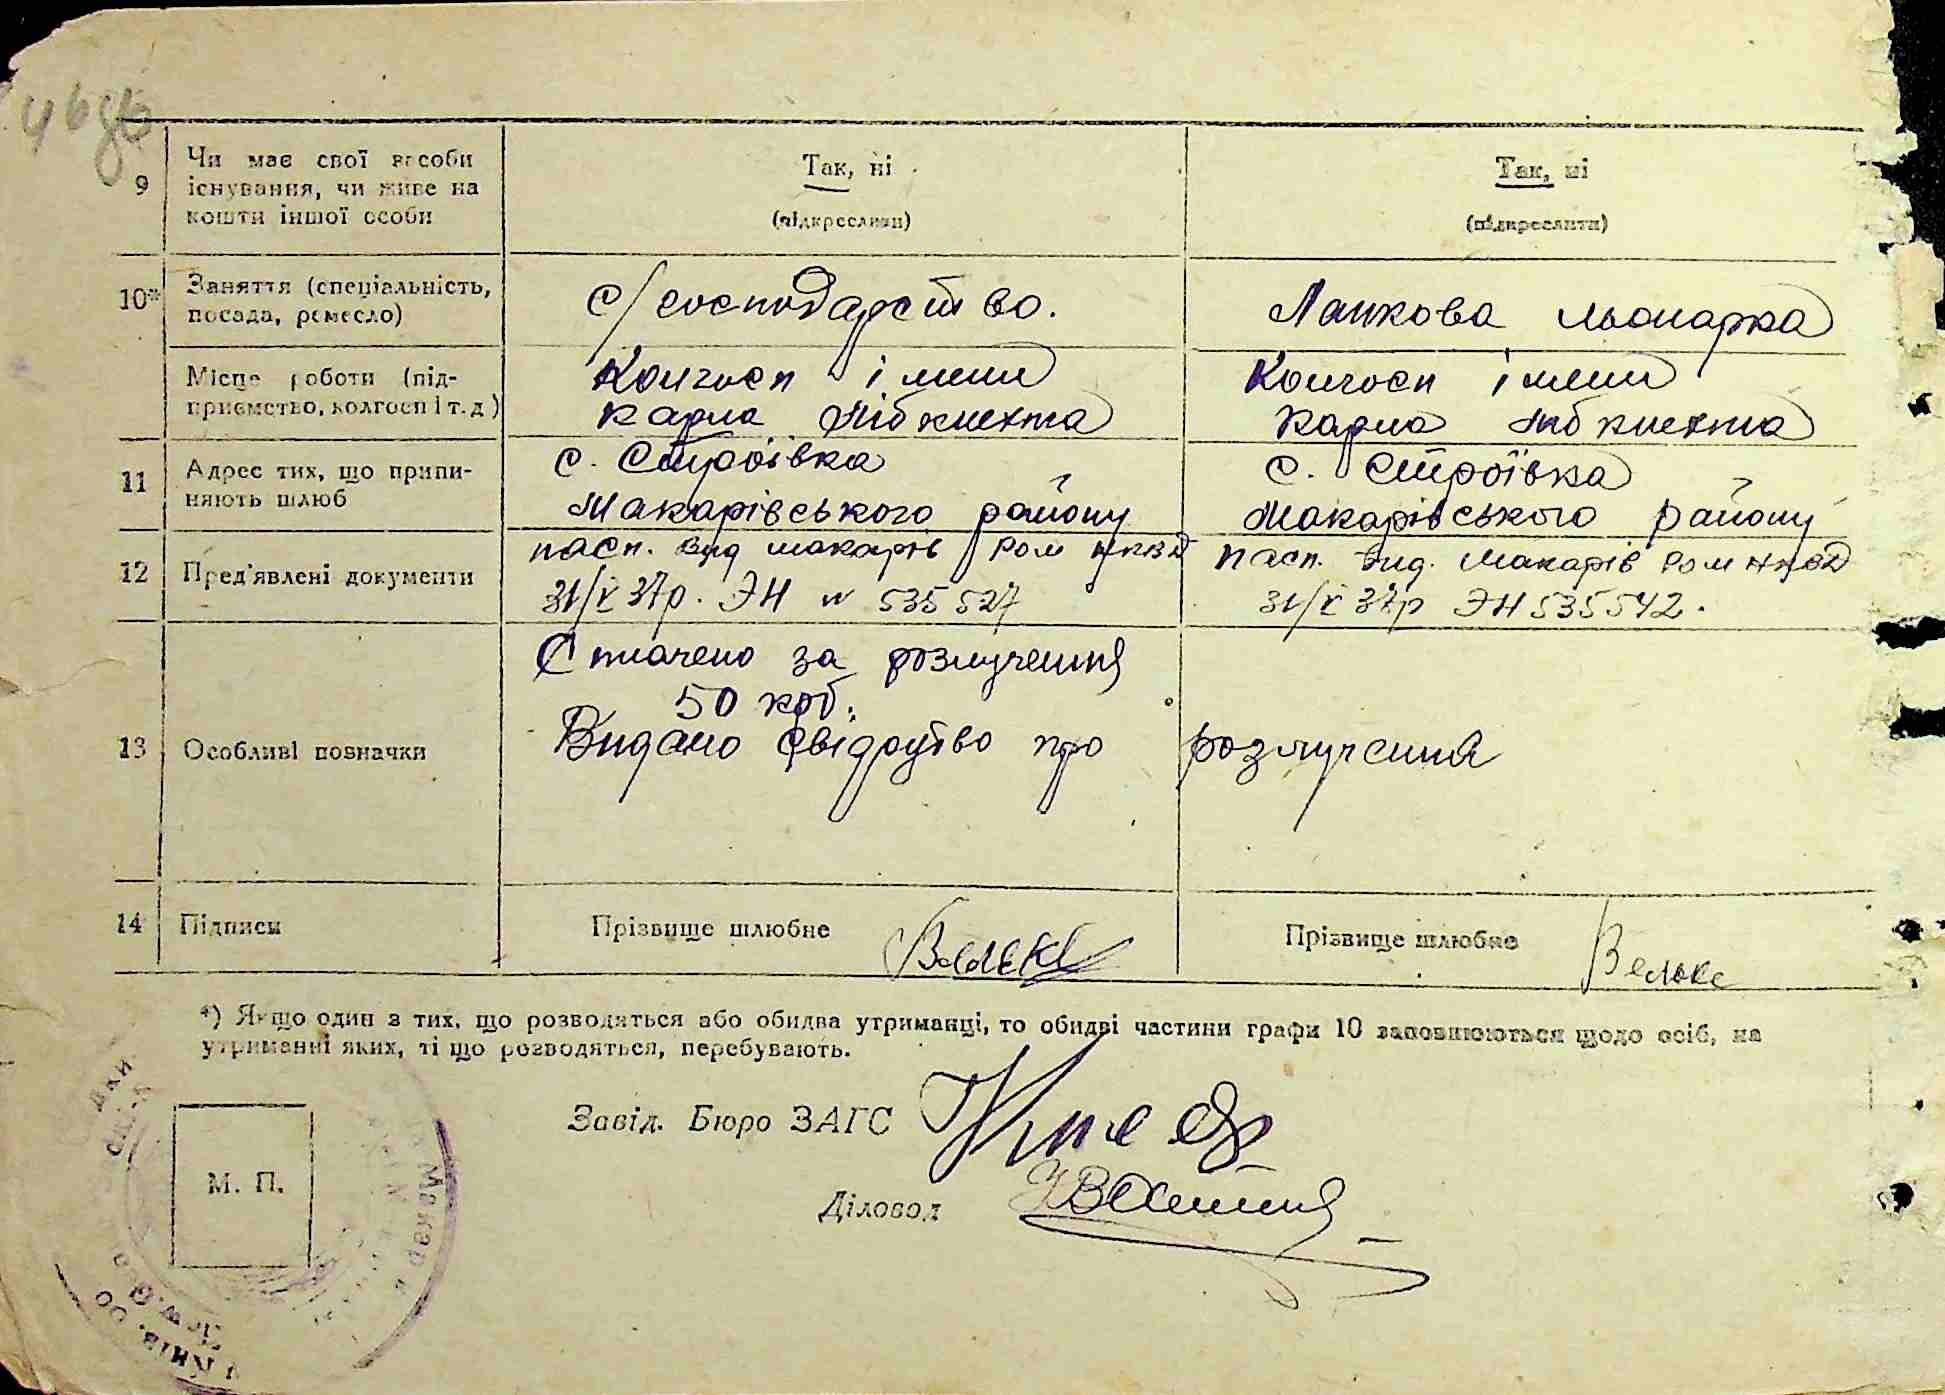 9 Чи має свої засоби існування, чи живе на кошти іншої особи
Так, ні
(підкреслити)
Так, ні
(підкреслити)
10* Заняття (спеціальність, посада, ремесло)
с/господарство.
Ланкова льонарка
Місце роботи (під-
приємство, колгосп і т. д)
Колгосп імени
Карла Лібкнехта
Колгосп імени
Карла Лібкнехта
11 Адрес тих, що припи-
няють шлюб
с. Строївка
Макарівського району
с. Строївка
Макарівського району
12 Пред'явлені документи
пасп. вид Макарів Ром НКВД
31/V 37р. ЭН № 535527
пасп. вид. Макарів Ром НКВД
31/V 37р ЭН 535542.
13 Особливі позначки
Сплачено за розлучення
50 коб.
Видано свідоцтво про розлучення
14 Підписи
Прізвище шлюбне
Прізвище шлюбне Вельке
*) Якщо один з тих, що розводяться або обидва утриманці, то обидві частини графи 10 заповнюються щодо осіб, на
утриманні яких, ті що розводяться, перебувають.
Завід. Бюро ЗАГС
Діловод
М. П.